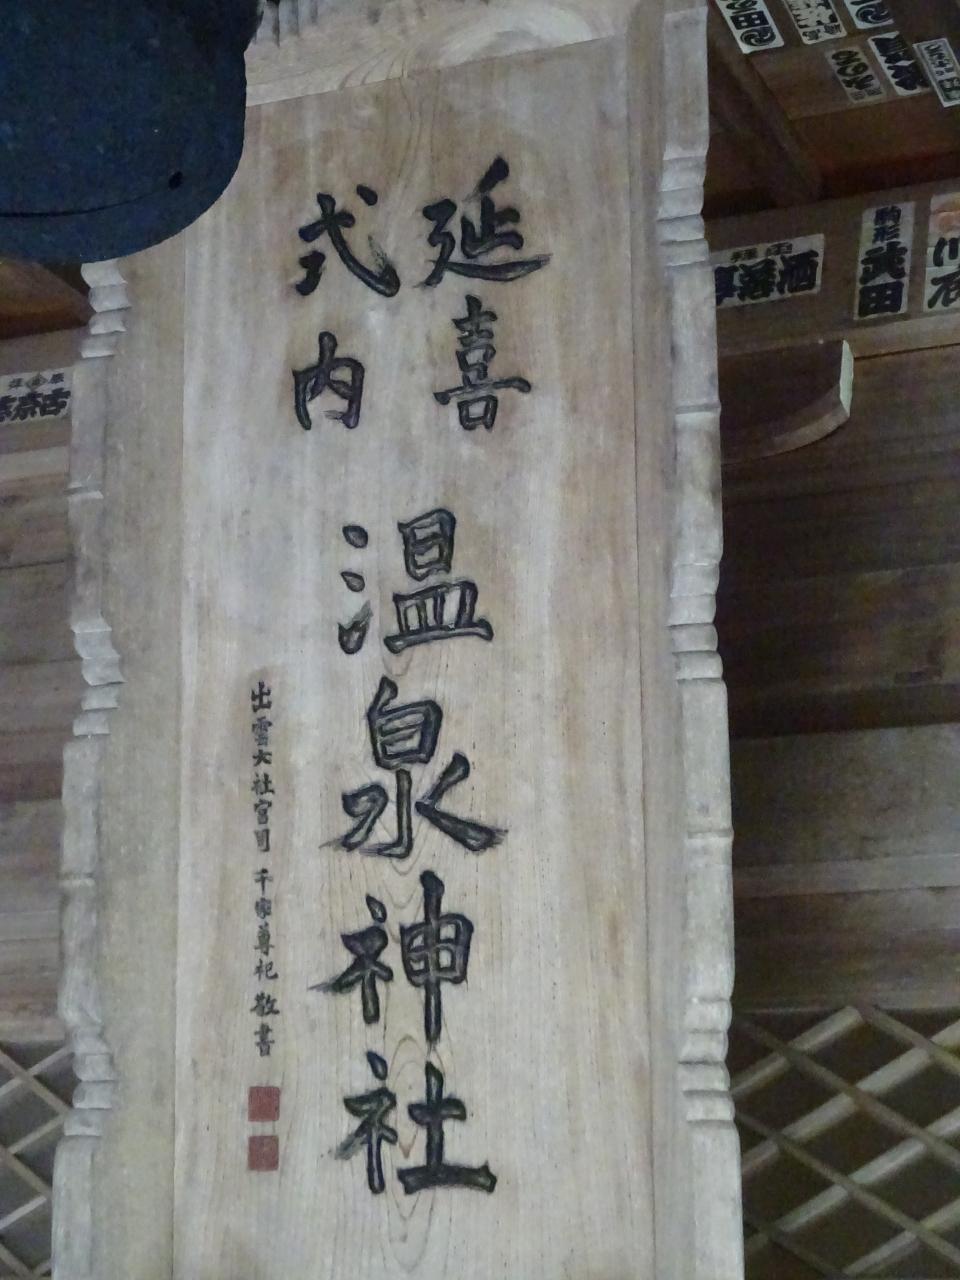 延喜
式内
温泉神社
出雲大社宮司 千家尊祀 敬書
駒形
武田